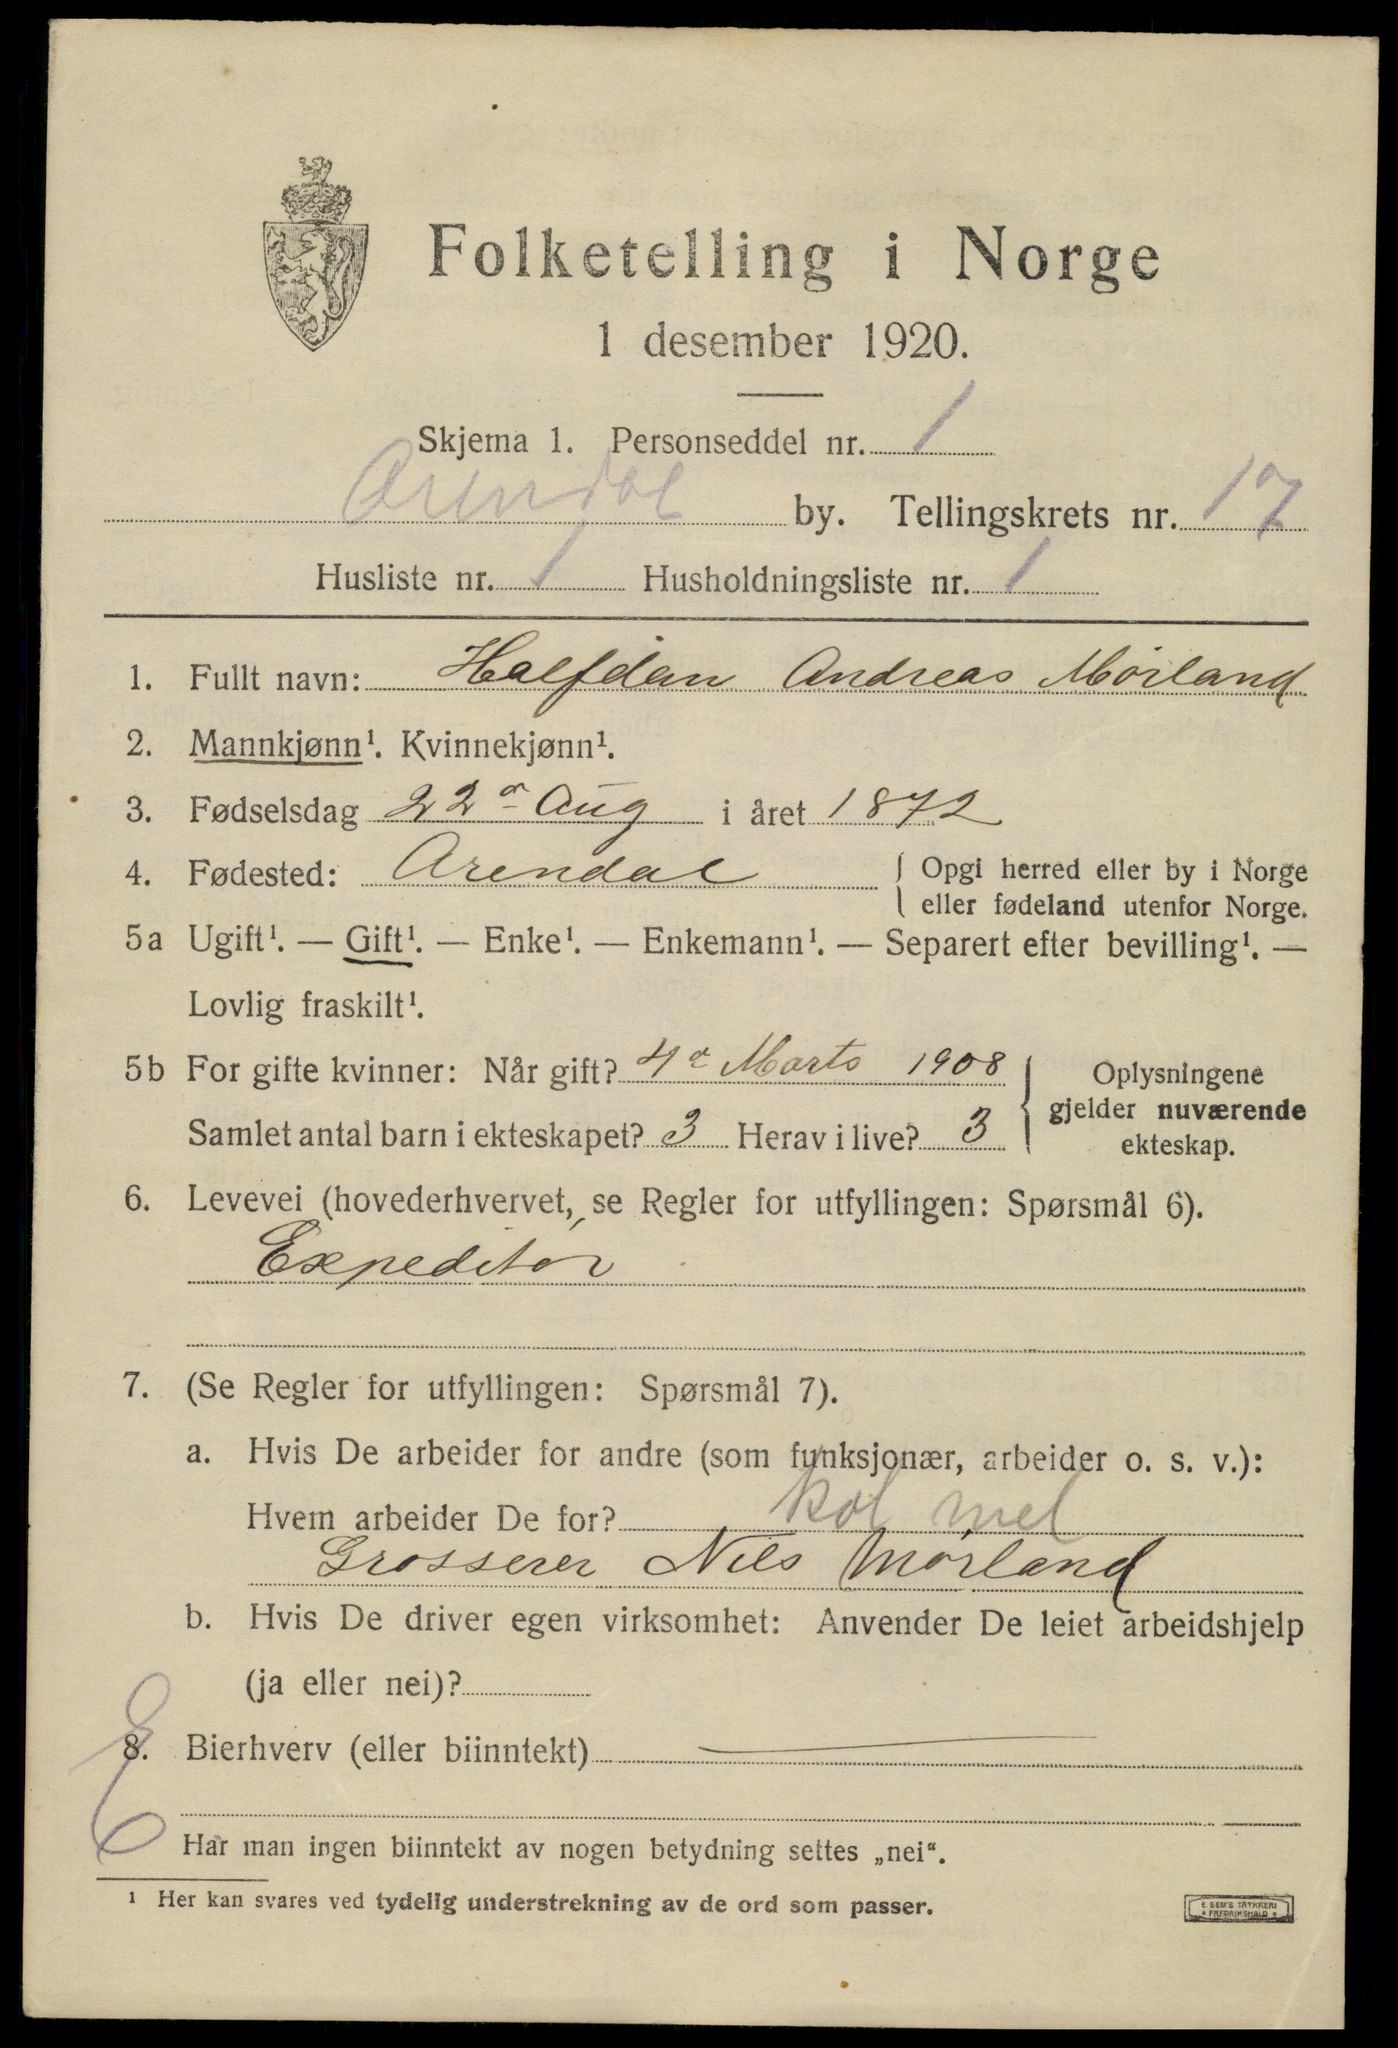 Folketelling i Norge
1 desember 1920.
Skjema 1. Personseddel nr. 1
Arendal by. Tellingskrets nr. 17
Husliste nr. 1 Husholdningsliste nr. 1
1. Fullt navn: Halfdan Andreas Mörland
2. Mannkjønn¹. Kvinnekjønn¹.
3. Fødselsdag 22 Aug i året 1872
4. Fødested: Arendal { Opgi herred eller by i Norge
eller fødeland utenfor Norge.
5a Ugift¹. — Gift¹. — Enke¹. — Enkemann¹. — Separert efter bevilling¹. —
Lovlig fraskilt¹.
5b For gifte kvinner: Når gift? 4 Marts 1908 { Oplysningene
gjelder nuværende
Samlet antal barn i ekteskapet? 3 Herav i live? 3
ekteskap.
6. Levevei (hovederhvervet, se Regler for utfyllingen: Spørsmål 6).
Expeditör
7. (Se Regler for utfyllingen: Spørsmål 7).
a. Hvis De arbeider for andre (som funksjonær, arbeider o. s. v.):
Hvem arbeider De for? kol mel
Grosserer Nils Mörland
b. Hvis De driver egen virksomhet: Anvender De leiet arbeidshjelp
(ja eller nei)?
8. Bierhverv (eller biinntekt)
Har man ingen biinntekt av nogen betydning settes „nei“.
¹ Her kan svares ved tydelig understrekning av de ord som passer.
E SEM'S TRYKKERI
FREDRIKSHALD